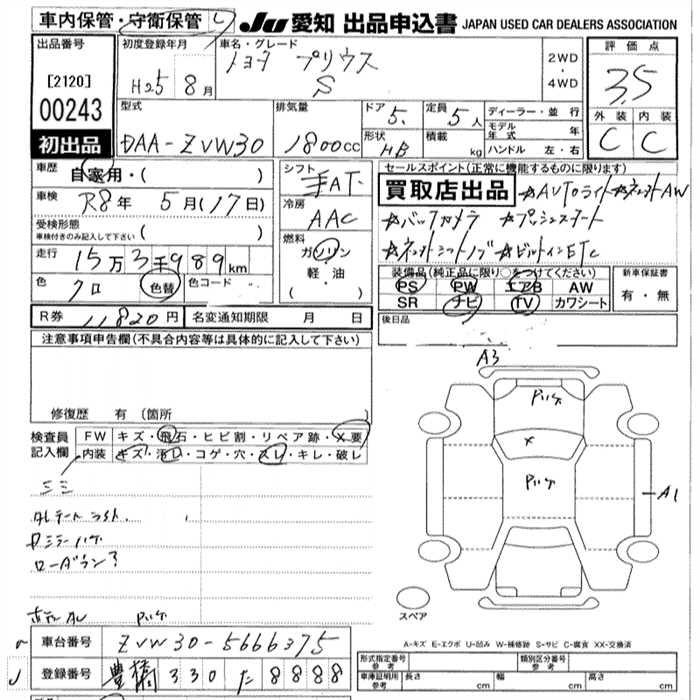 車内保管・守衛保管 レ JU 愛知 出品申込書 JAPAN USED CAR DEALERS ASSOCIATION
出品番号 初度登録年月 車名・グレード 評価点
[2120] H25 8月 トヨタ プリウス 2WD 3.5
00243 S 4WD
型式 排気量 ドア 定員 ディーラー・並行 外装 内装
初出品 DAA-ZVW30 1800cc 5 5人 モデル年式 年 C C
形状 HB 積載 kg ハンドル 左・右
車歴 自家用・( ) シフト FAT セールスポイント(正常に機能するものに限ります)
車検 R8年 5月(17日) 冷房 買取店出品 ☆AUTOライト
受検形態 車検付きのみ記入して下さい ( ) AAC ☆バックカメラ ☆プッシュスタート
走行 15万3千989km 燃料 ガソリン ☆ビルトインETC
色 クロ 色替 色コード 軽・油 装備品(純正品に限り○をつけてください) 新車保証書
( ・ ) PS PW エアB AW 有・無
SR ナビ TV カワシート
R券 11,820円 名変通知期限 月 日 後日品
注意事項申告欄(不具合内容等は具体的に記入して下さい)
A3
修復歴 有(箇所 )
検査員 FW キズ・飛石・ヒビ割・リペア跡・X要
記入欄 内装 キズ・汚レ・コゲ・穴・スレ・キレ・破レ
A1
スペア
A-キズ E-エクボ U-凹み W-補修跡 S-サビ C-腐食 XX-交換済
車台番号 ZVW30-5666375 形式指定番号 参考 類別区分番号 参考
登録番号 豊橋 330 た 8888 車庫証明用 参考 長さ cm 幅 cm 高さ cm